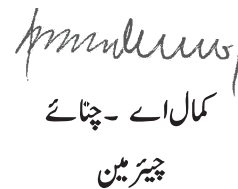 کمال اے ۔ چنائے
چیئرمین